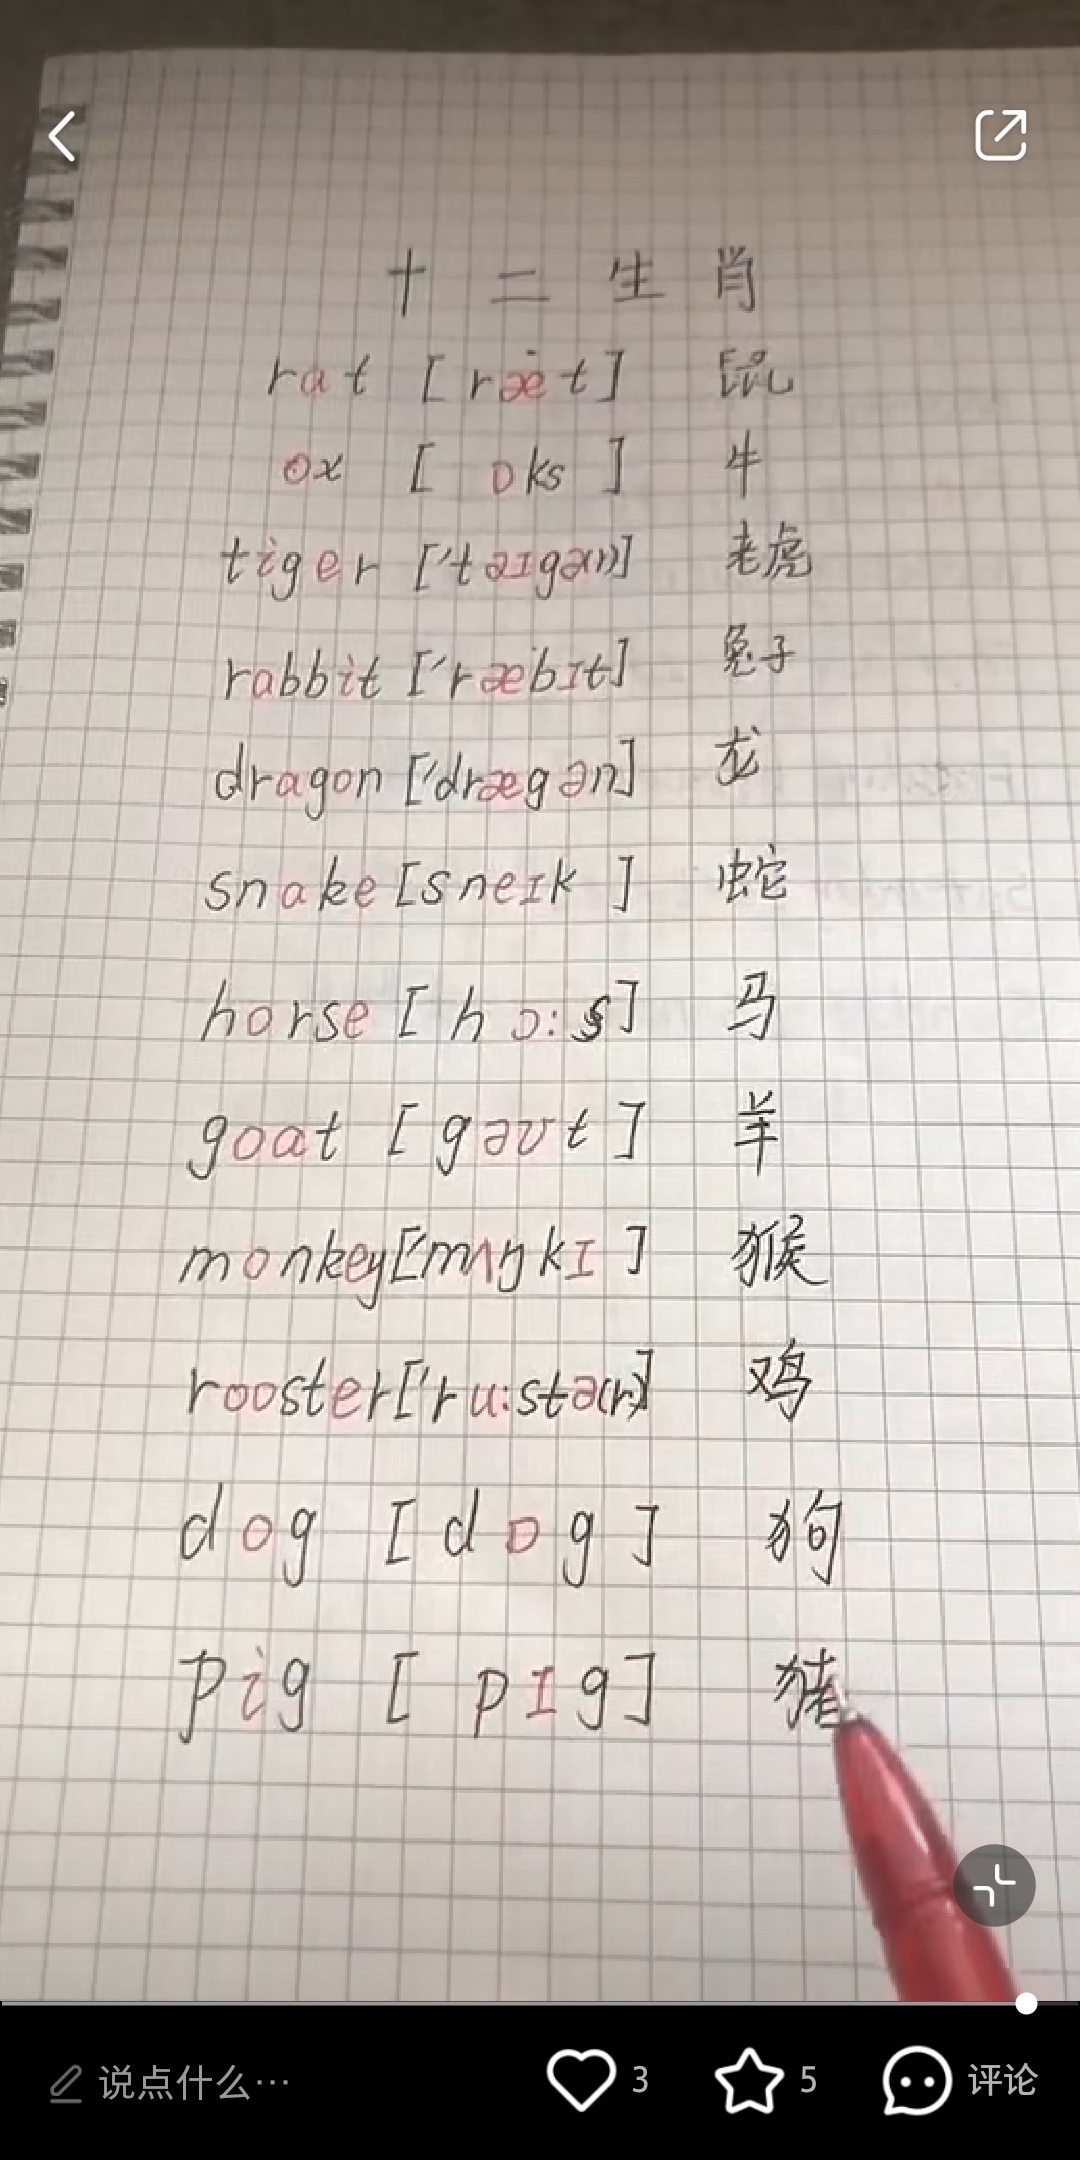 十二生肖
rat [ræt] 鼠
ox [ɒks] 牛
tiger ['taɪgə(r)] 老虎
rabbit ['ræbɪt] 兔子
dragon ['drægən] 龙
snake [sneɪk] 蛇
horse [hɔ:s] 马
goat [gəʊt] 羊
monkey ['mʌŋkɪ] 猴
rooster ['ru:stə(r)] 鸡
dog [dɒg] 狗
pig [pɪg] 猪
说点什么… 3 5 评论